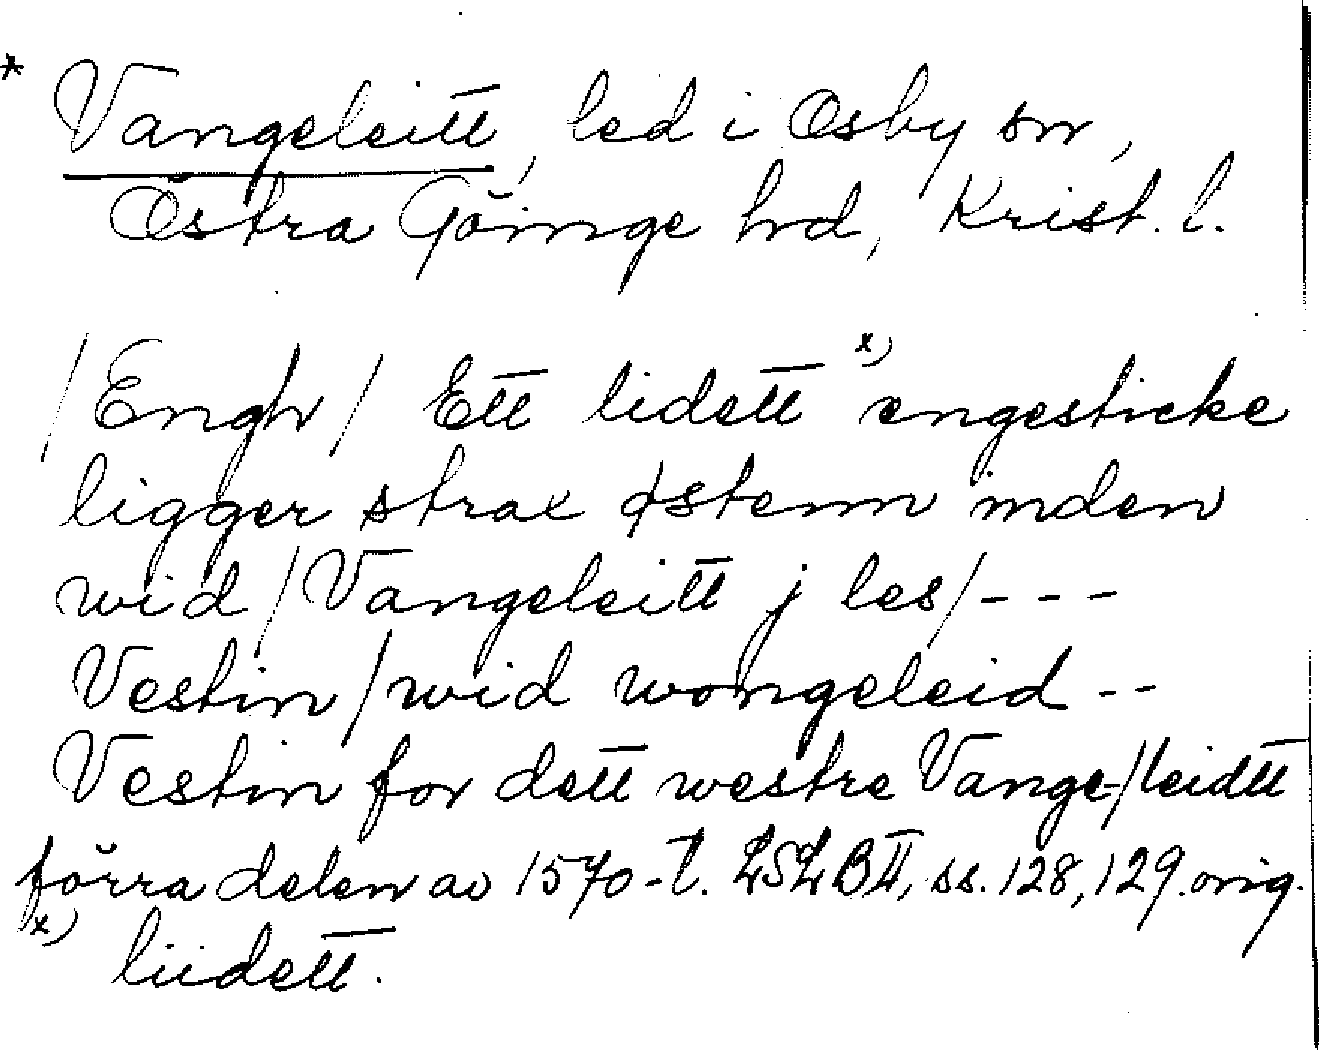 * Vangeleitt, led i Osby sn,
Östra Göinge hd, Krist. l.
/Engh/ Ett lidett x) engesticke
ligger strax østenn inden
wid /Vangeleitt j les/ - - -
Vestin /wid wongeleid - -
Vestin for dett westre Vange-/leidtt
förra delen av 1570-t. LSLB II, ss. 128, 129. orig.
x) liidett.